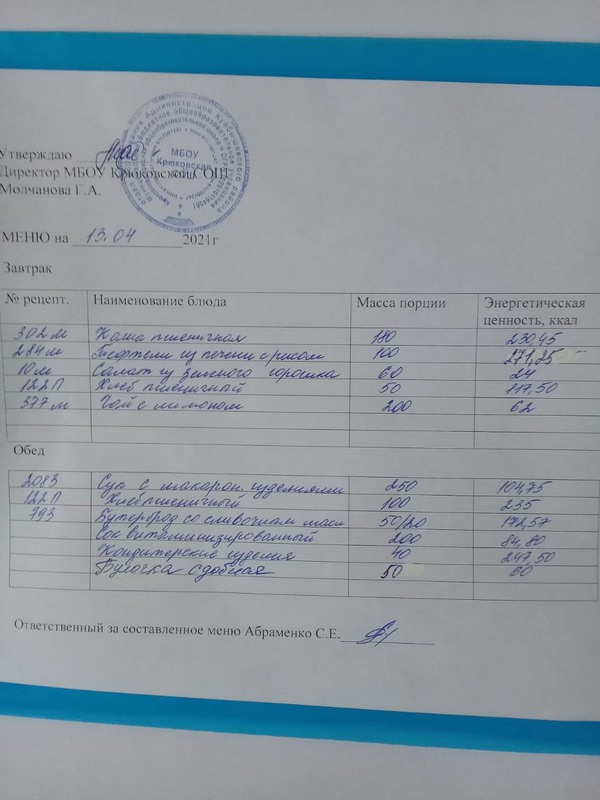 Утверждаю
Директор МБОУ Крюковской СОШ
Молчанова Г.А.
МБОУ
Крюковская
СОШ
МЕНЮ на 13.04 2021г
Завтрак
№ рецепт. Наименование блюда Масса порции Энергетическая ценность, ккал
302 м Каша пшеничная 180 230,45
284 м Тефтели из печени с рисом 100 271,25
10 м Салат из зеленого горошка 60 24
122 П Хлеб пшеничный 50 117,50
377 м Чай с лимоном 200 62
Обед
2083 Суп с макарон. изделиями 250 104,75
122 П Хлеб пшеничный 100 235
793 Бутерброд со сливочным масл 50/20 172,57
Сок витаминизированный 200 84,80
Кондитерские изделия 40 247,50
Булочка сдобная 50 60
Ответственный за составленное меню Абраменко С.Е.